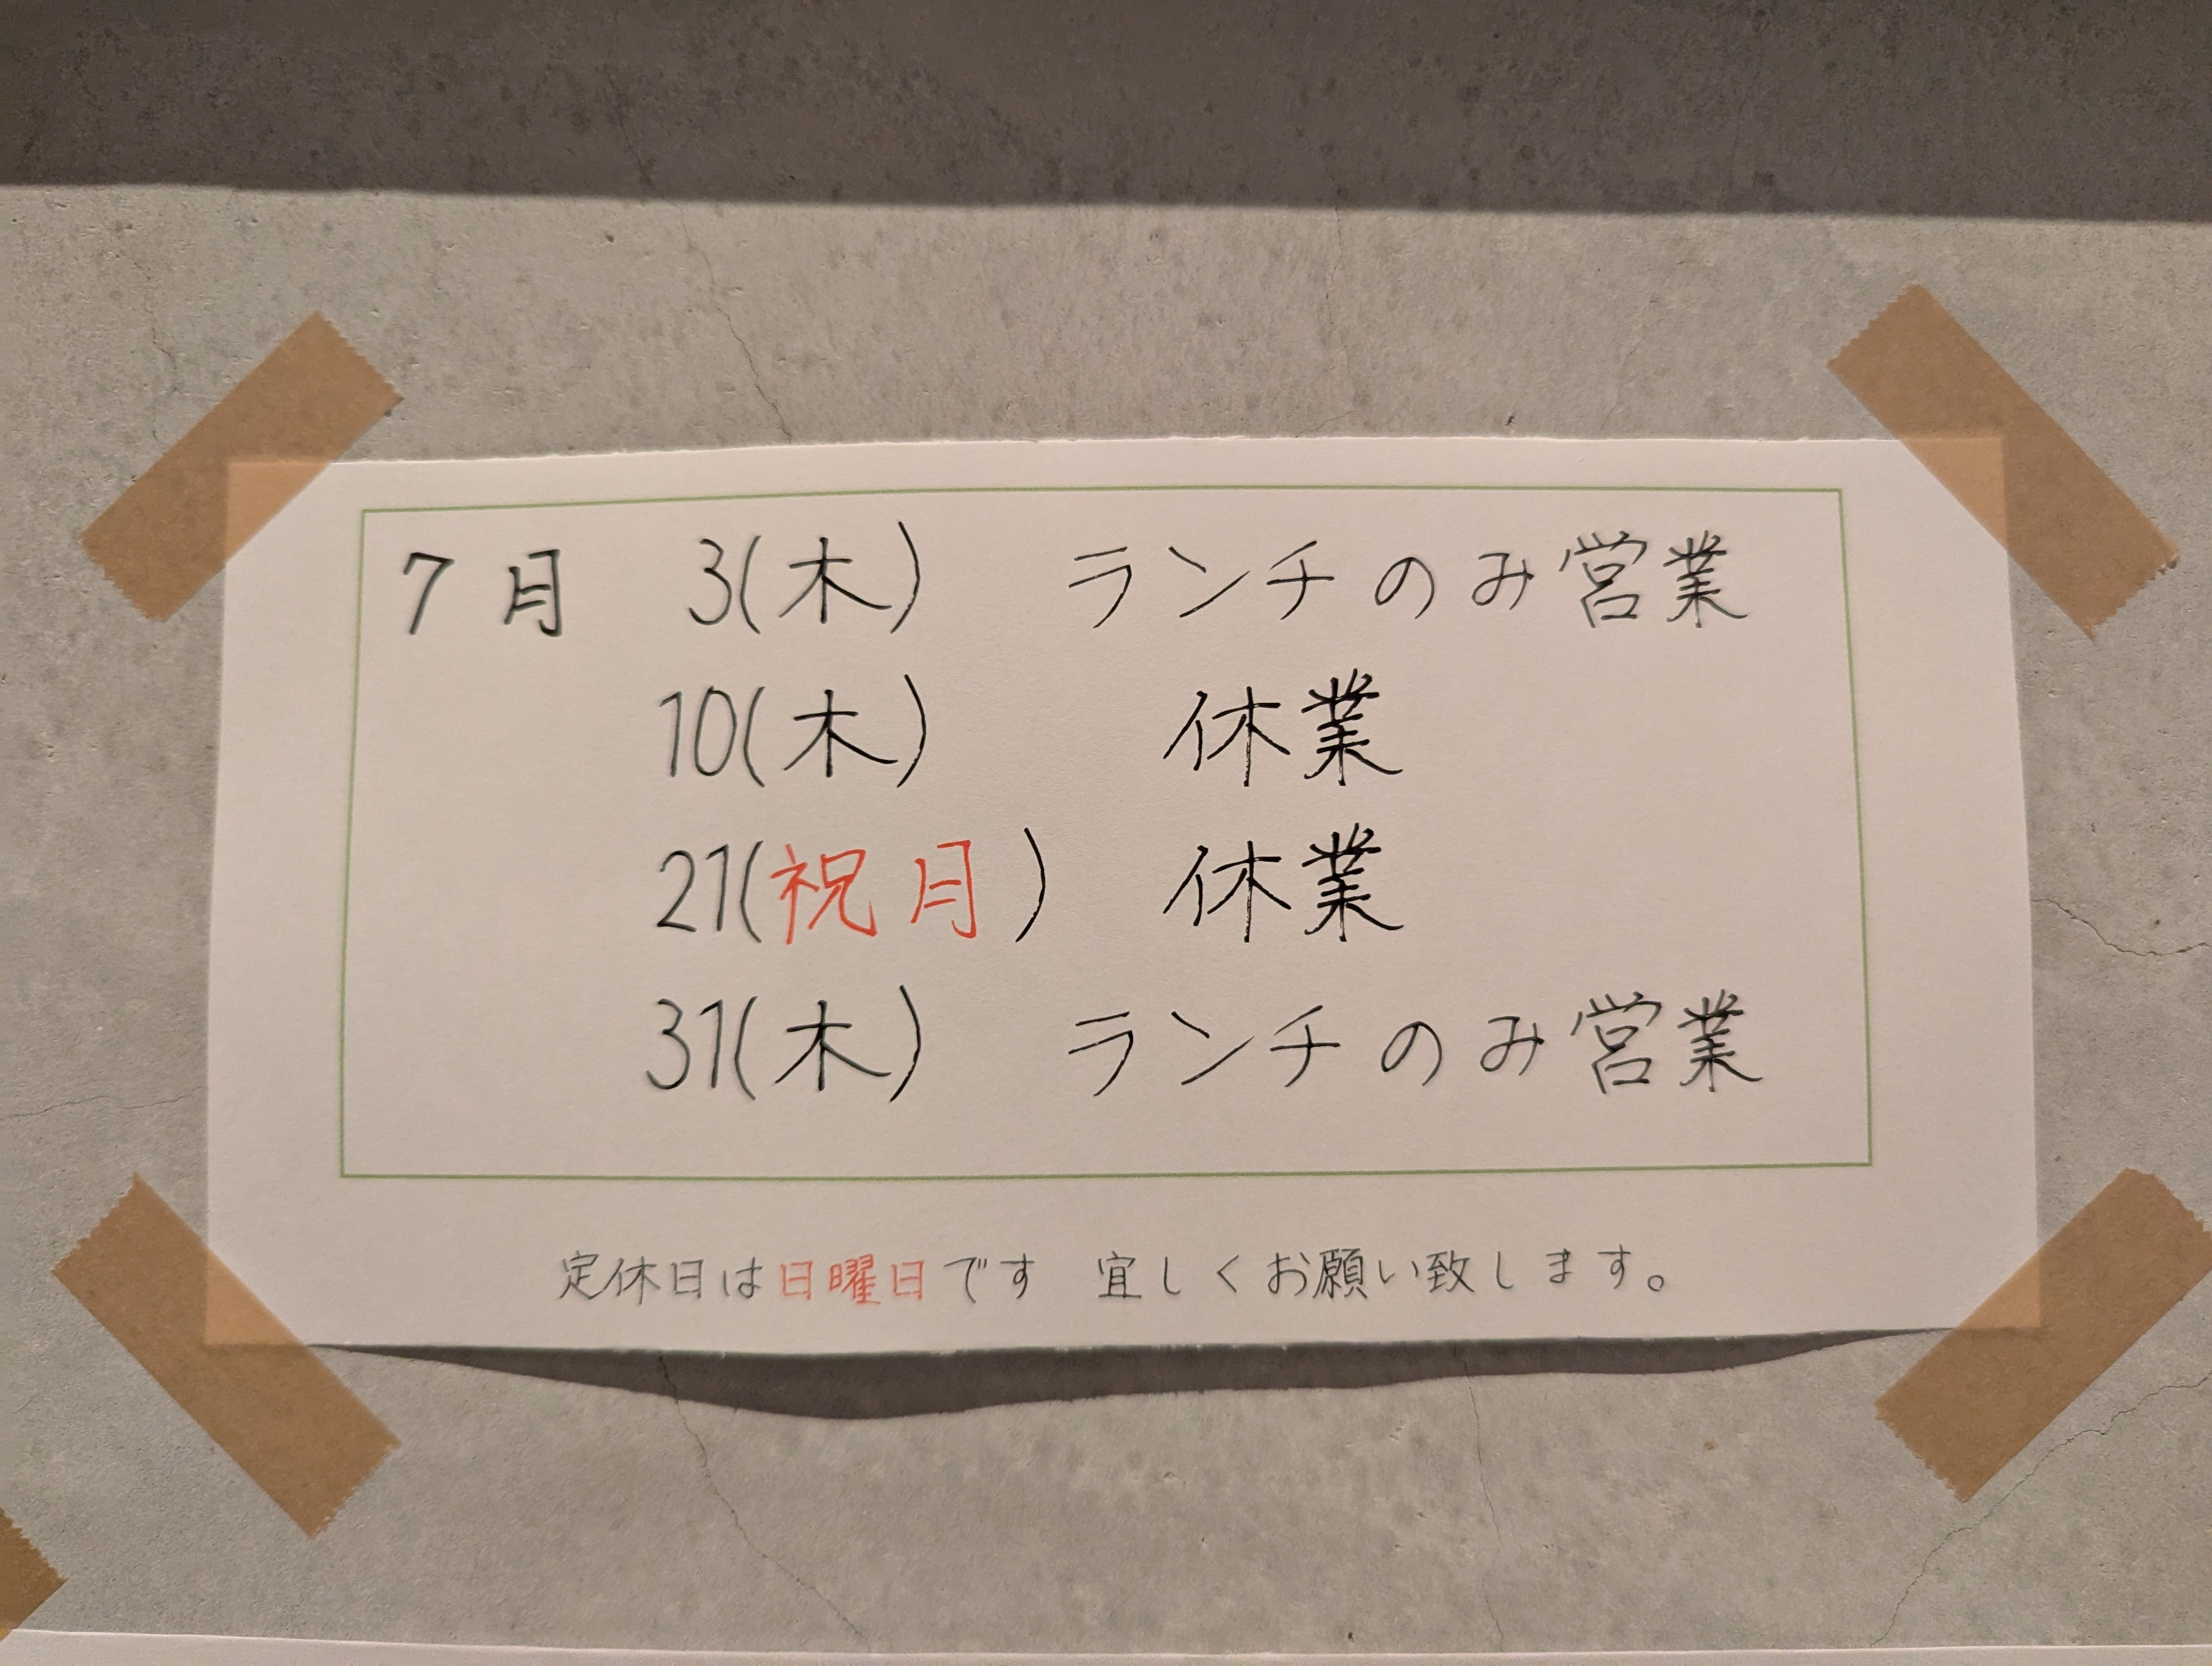 7月 3(木) ランチのみ営業
10(木) 休業
21(祝月) 休業
31(木) ランチのみ営業
定休日は日曜日です 宜しくお願い致します。